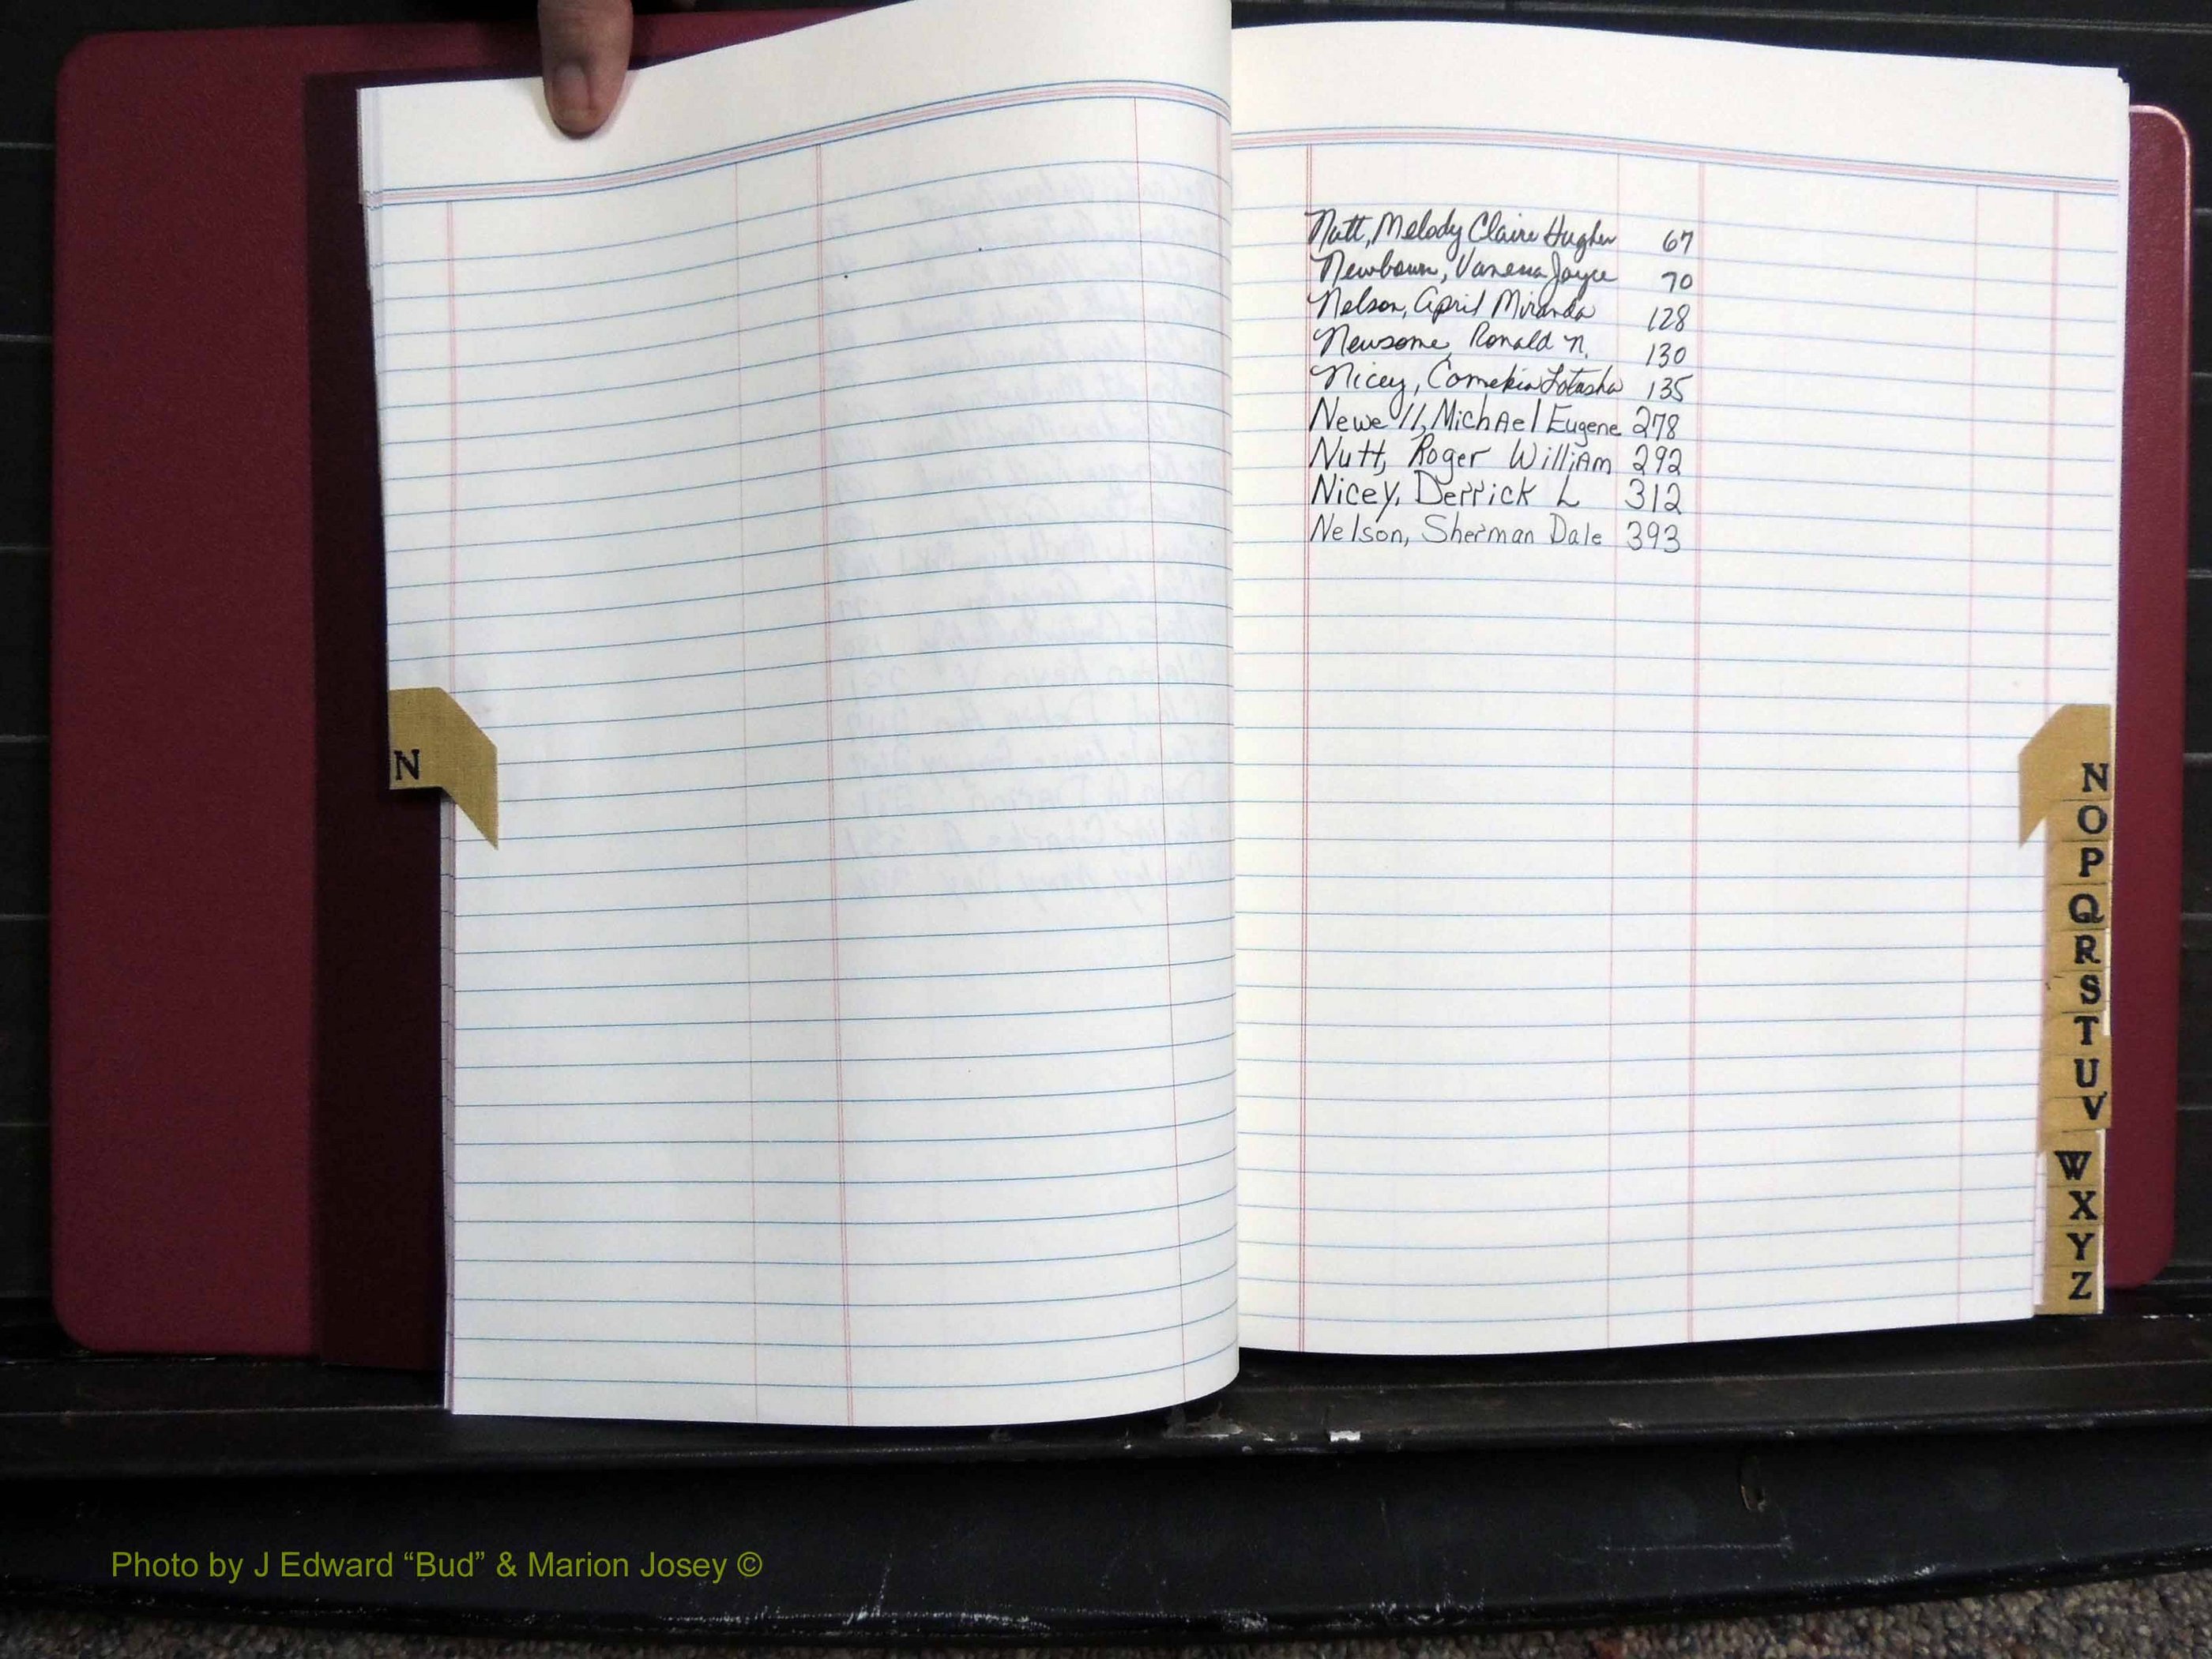 N
Nutt, Melody Claire Hughes 67
Newbourn, Vanessa Joyce 70
Nelson, April Miranda 128
Newsome, Ronald N. 130
Nicey, Comekia Lotasha 135
Newell, MichAel Eugene 278
Nutt, Roger WilliAm 292
Nicey, Derrick L 312
Nelson, Sherman Dale 393
N
O
P
Q
R
S
T
U
V
W
X
Y
Z
Photo by J Edward “Bud” & Marion Josey ©